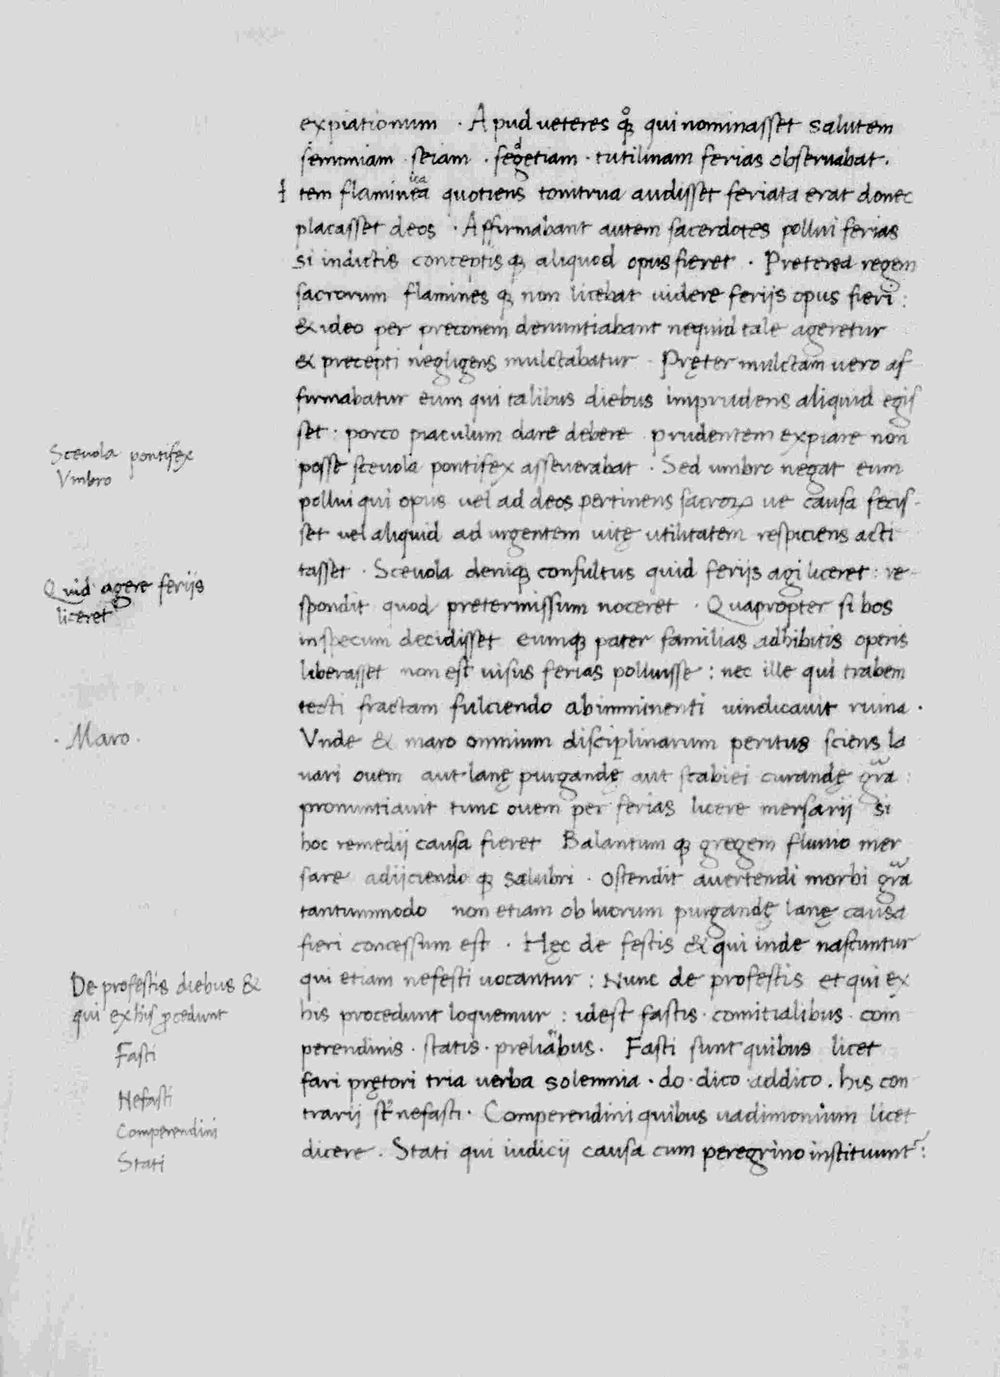 expiationum · Apud ueteres qͦꝫ qui nominasset salutem
semoniam · seiam · segetiam · tutilinam ferias obseruabat ·
Item flaminica quotiens tonitrua audisset feriata erat donec
placasset deos · Affirmabant autem sacerdotes pollui ferias
si indictis conceptisqꝫ aliquod opus fieret · Preterea regem
sacrorum flaminesqꝫ non licebat uidere ferijs opus fieri :
& ideo per preconem denuntiabant nequid tale ageretur
& precepti negligens mulctabatur · Pręter mulctam uero af
firmabatur eum qui talibus diebus imprudens aliquid egis
set : porco piaculum dare debere prudentem expiare non
posse sceuola pontifex asseuerabat · Sed umbro negat eum
pollui qui opus uel ad deos pertinens sacroꝝ ue causa fecis-
set uel aliquid ad urgentem uitę utilitatem respiciens acti
tasset · Sceuola deniqꝫ consultus quid ferijs agi liceret : re-
spondit quod pretermissum noceret · Quapropter si bos
in specum decidisset eumqꝫ pater familias adhibitis operis
liberasset non est uisus ferias polluisse : nec ille qui trabem
tecti fractam fulciendo ab imminenti uindicauit ruina ·
Vnde & maro omnium disciplinarum peritus sciens la
uari ouem aut lanę purgandę aut scabiei curandę gr̄a :
pronuntiauit tunc ouem per ferias licere mersarij si
hoc remedij causa fieret Balantumqꝫ gregem fluuio mer
sare adijciendoqꝫ salubri · ostendit auertendi morbi gr̄a
tantummodo non etiam ob lucrum purgandę lanę causa
fieri concessum est · Hęc de festis & qui inde nascuntur
qui etiam nefesti uocantur : Nunc de profestis et qui ex
his procedunt loquemur : idest fastis · comitialibus · com
perendinis · statis · preliaribus · Fasti sunt quibus licet
fari prętori tria uerba solemnia · do · dico · addico · his con
trarij st̄ nefasti · Comperendini quibus uadimonium licet
dicere · Stati qui iudicij causa cum peregrino instituunt̄ :
Sceuola pontifex
Vmbro
Quid agere ferijs
liceret
· Maro ·
De profestis diebus &
qui ex his ꝓcedunt
Fasti
Nefasti
Comperendini
Stati